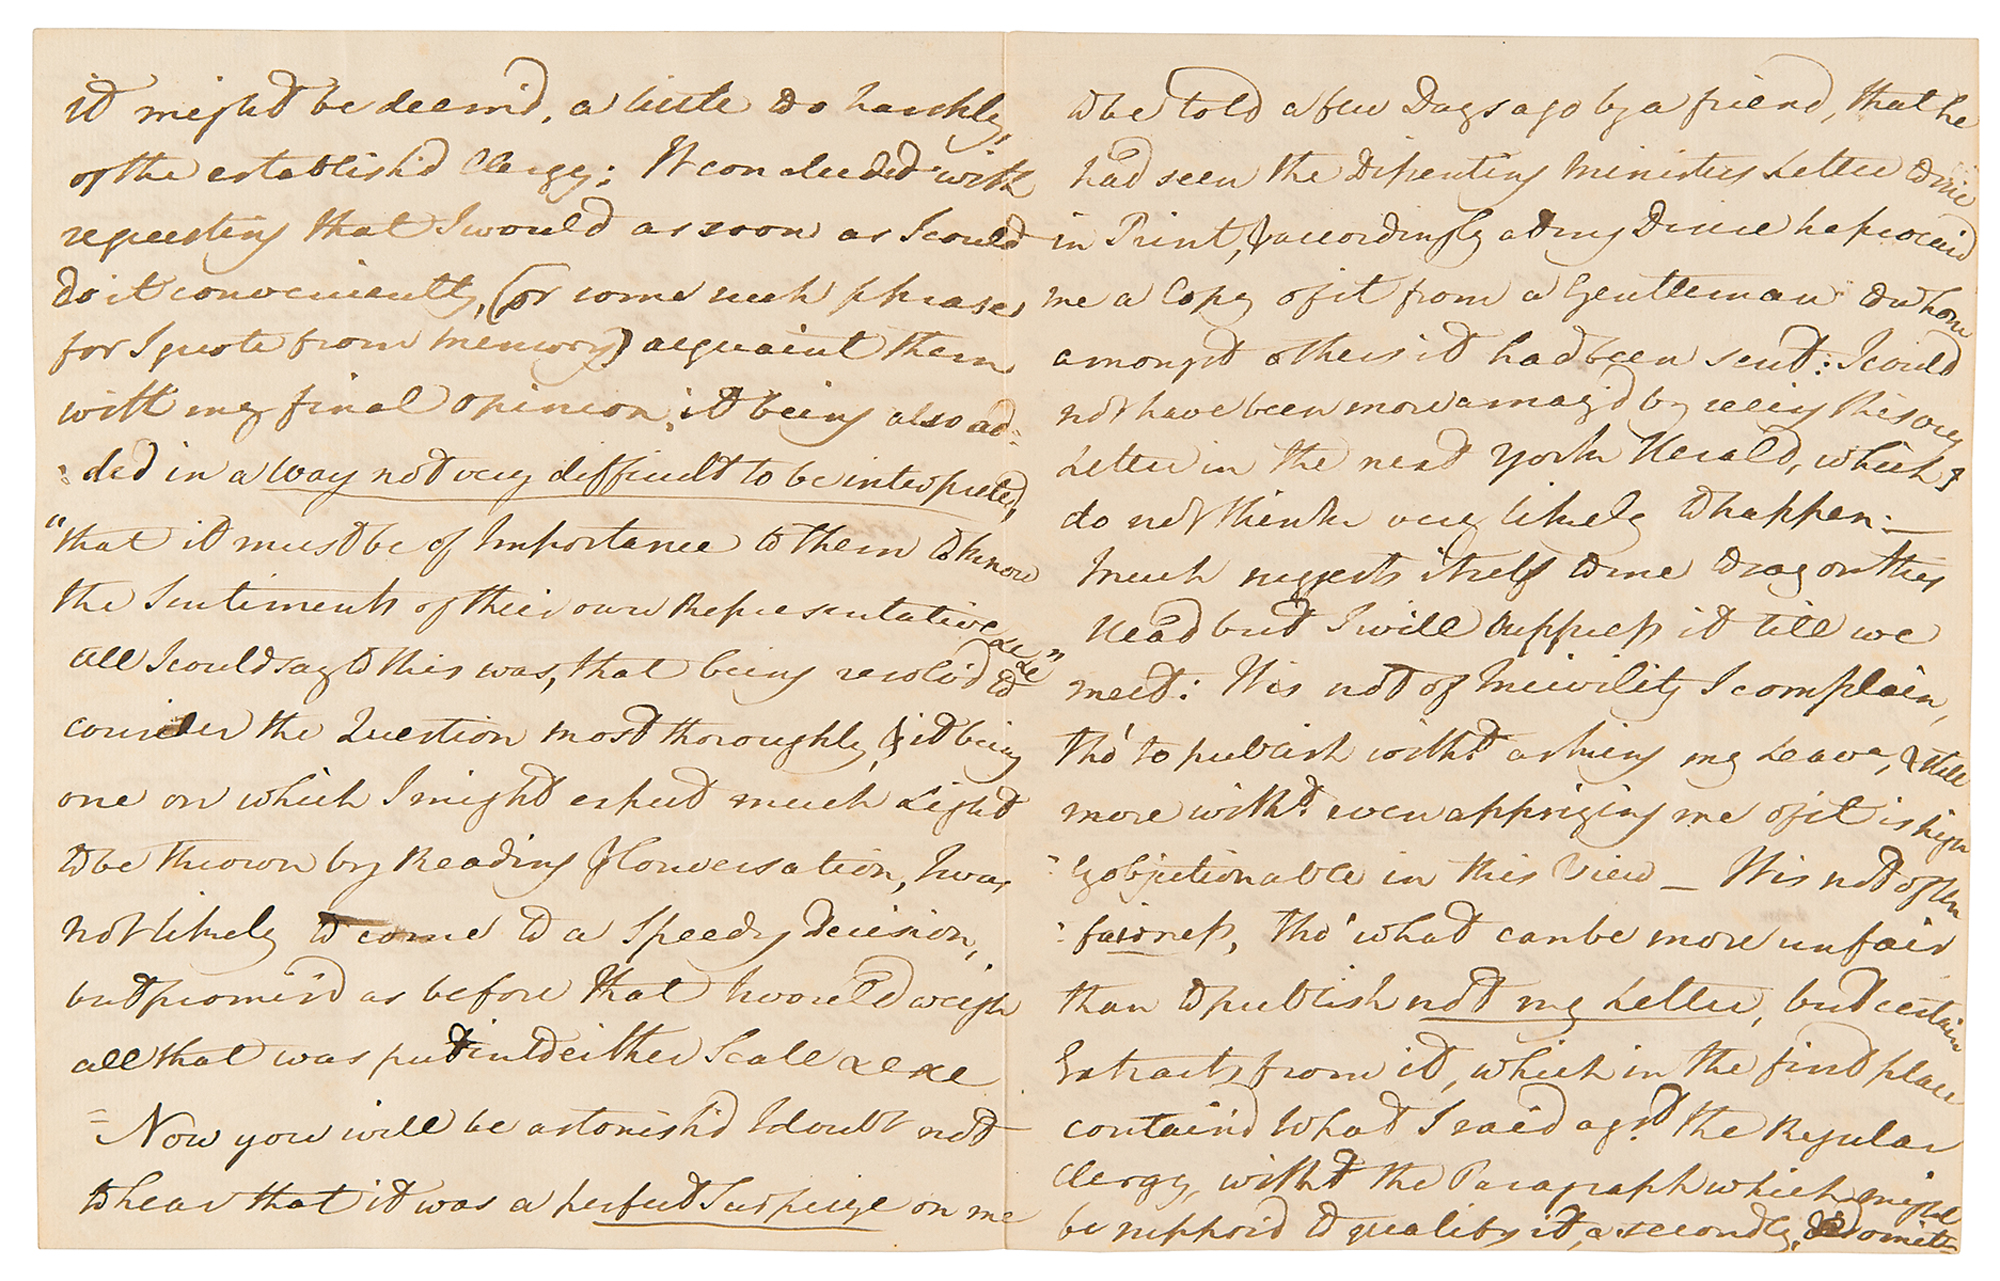 it might be deem'd, a little to harshly,
of the establish'd Clergy: It concluded with
requesting that I would as soon as I could
do it conveniently, (or some such phrase,
for I quote from memory) acquaint them
with my final opinion; it being also ad:
:ded in a way not very difficult to be interpreted,
"that it must be of Importance to them to know
the Sentiments of their own Representative &c &c"
All I could say to this was, that being resolv'd to
consider the Question most thoroughly, & it being
one on which I might expect much Light
to be thrown by Reading & Conversation, I was
not likely to come to a Speedy Decision,
but promis'd as before that I wou'd weigh
all that was put into either Scale &c &c
= Now you will be astonish'd I doubt not
to hear that it was a perfect Surprize on me
to be told a few Days ago by a friend, that he
had seen the Dissenting Ministers Letter to me
in Print, & accordingly at my Desire he procur'd
me a Copy of it from a Gentleman to whom
amongst others it had been sent: I could
not have been more amaz'd by seeing this very
Letter in the next York Herald, which I
do not think very likely to happen:—
Much suggests itself to me to say on this
Head but I will suppress it till we
meet: It is not of Incivility I complain,
tho' to publish witht asking my Leave, & still
more witht even apprizing me of it is high
:ly objectionable in this View — It is not of Un
:fairness, tho' what can be more unfair
than to publish not my Letter, but certain
Extracts from it, which in the first place
contain'd what I said agst the Regular
Clergy, witht the Paragraph which might
be suppos'd to qualify it, & secondly, omitt-